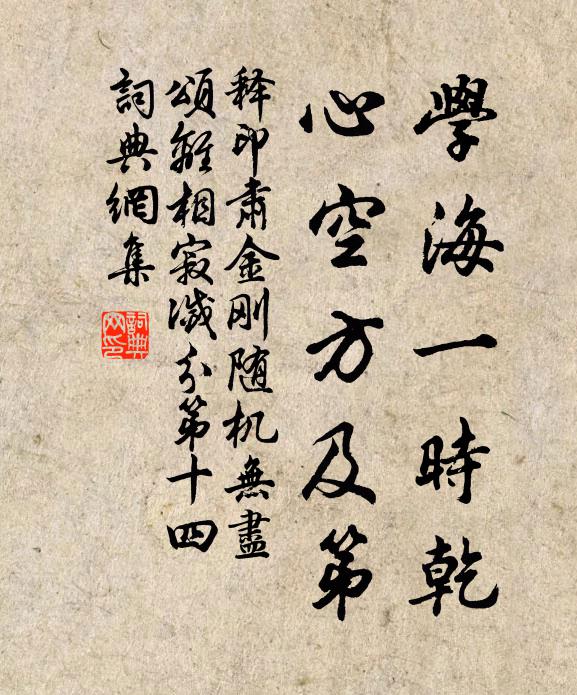 學海一時乾
心空方及第
释印肃金刚随机無盡
頌離相寂滅分第十四
詞典網集
詞典網印